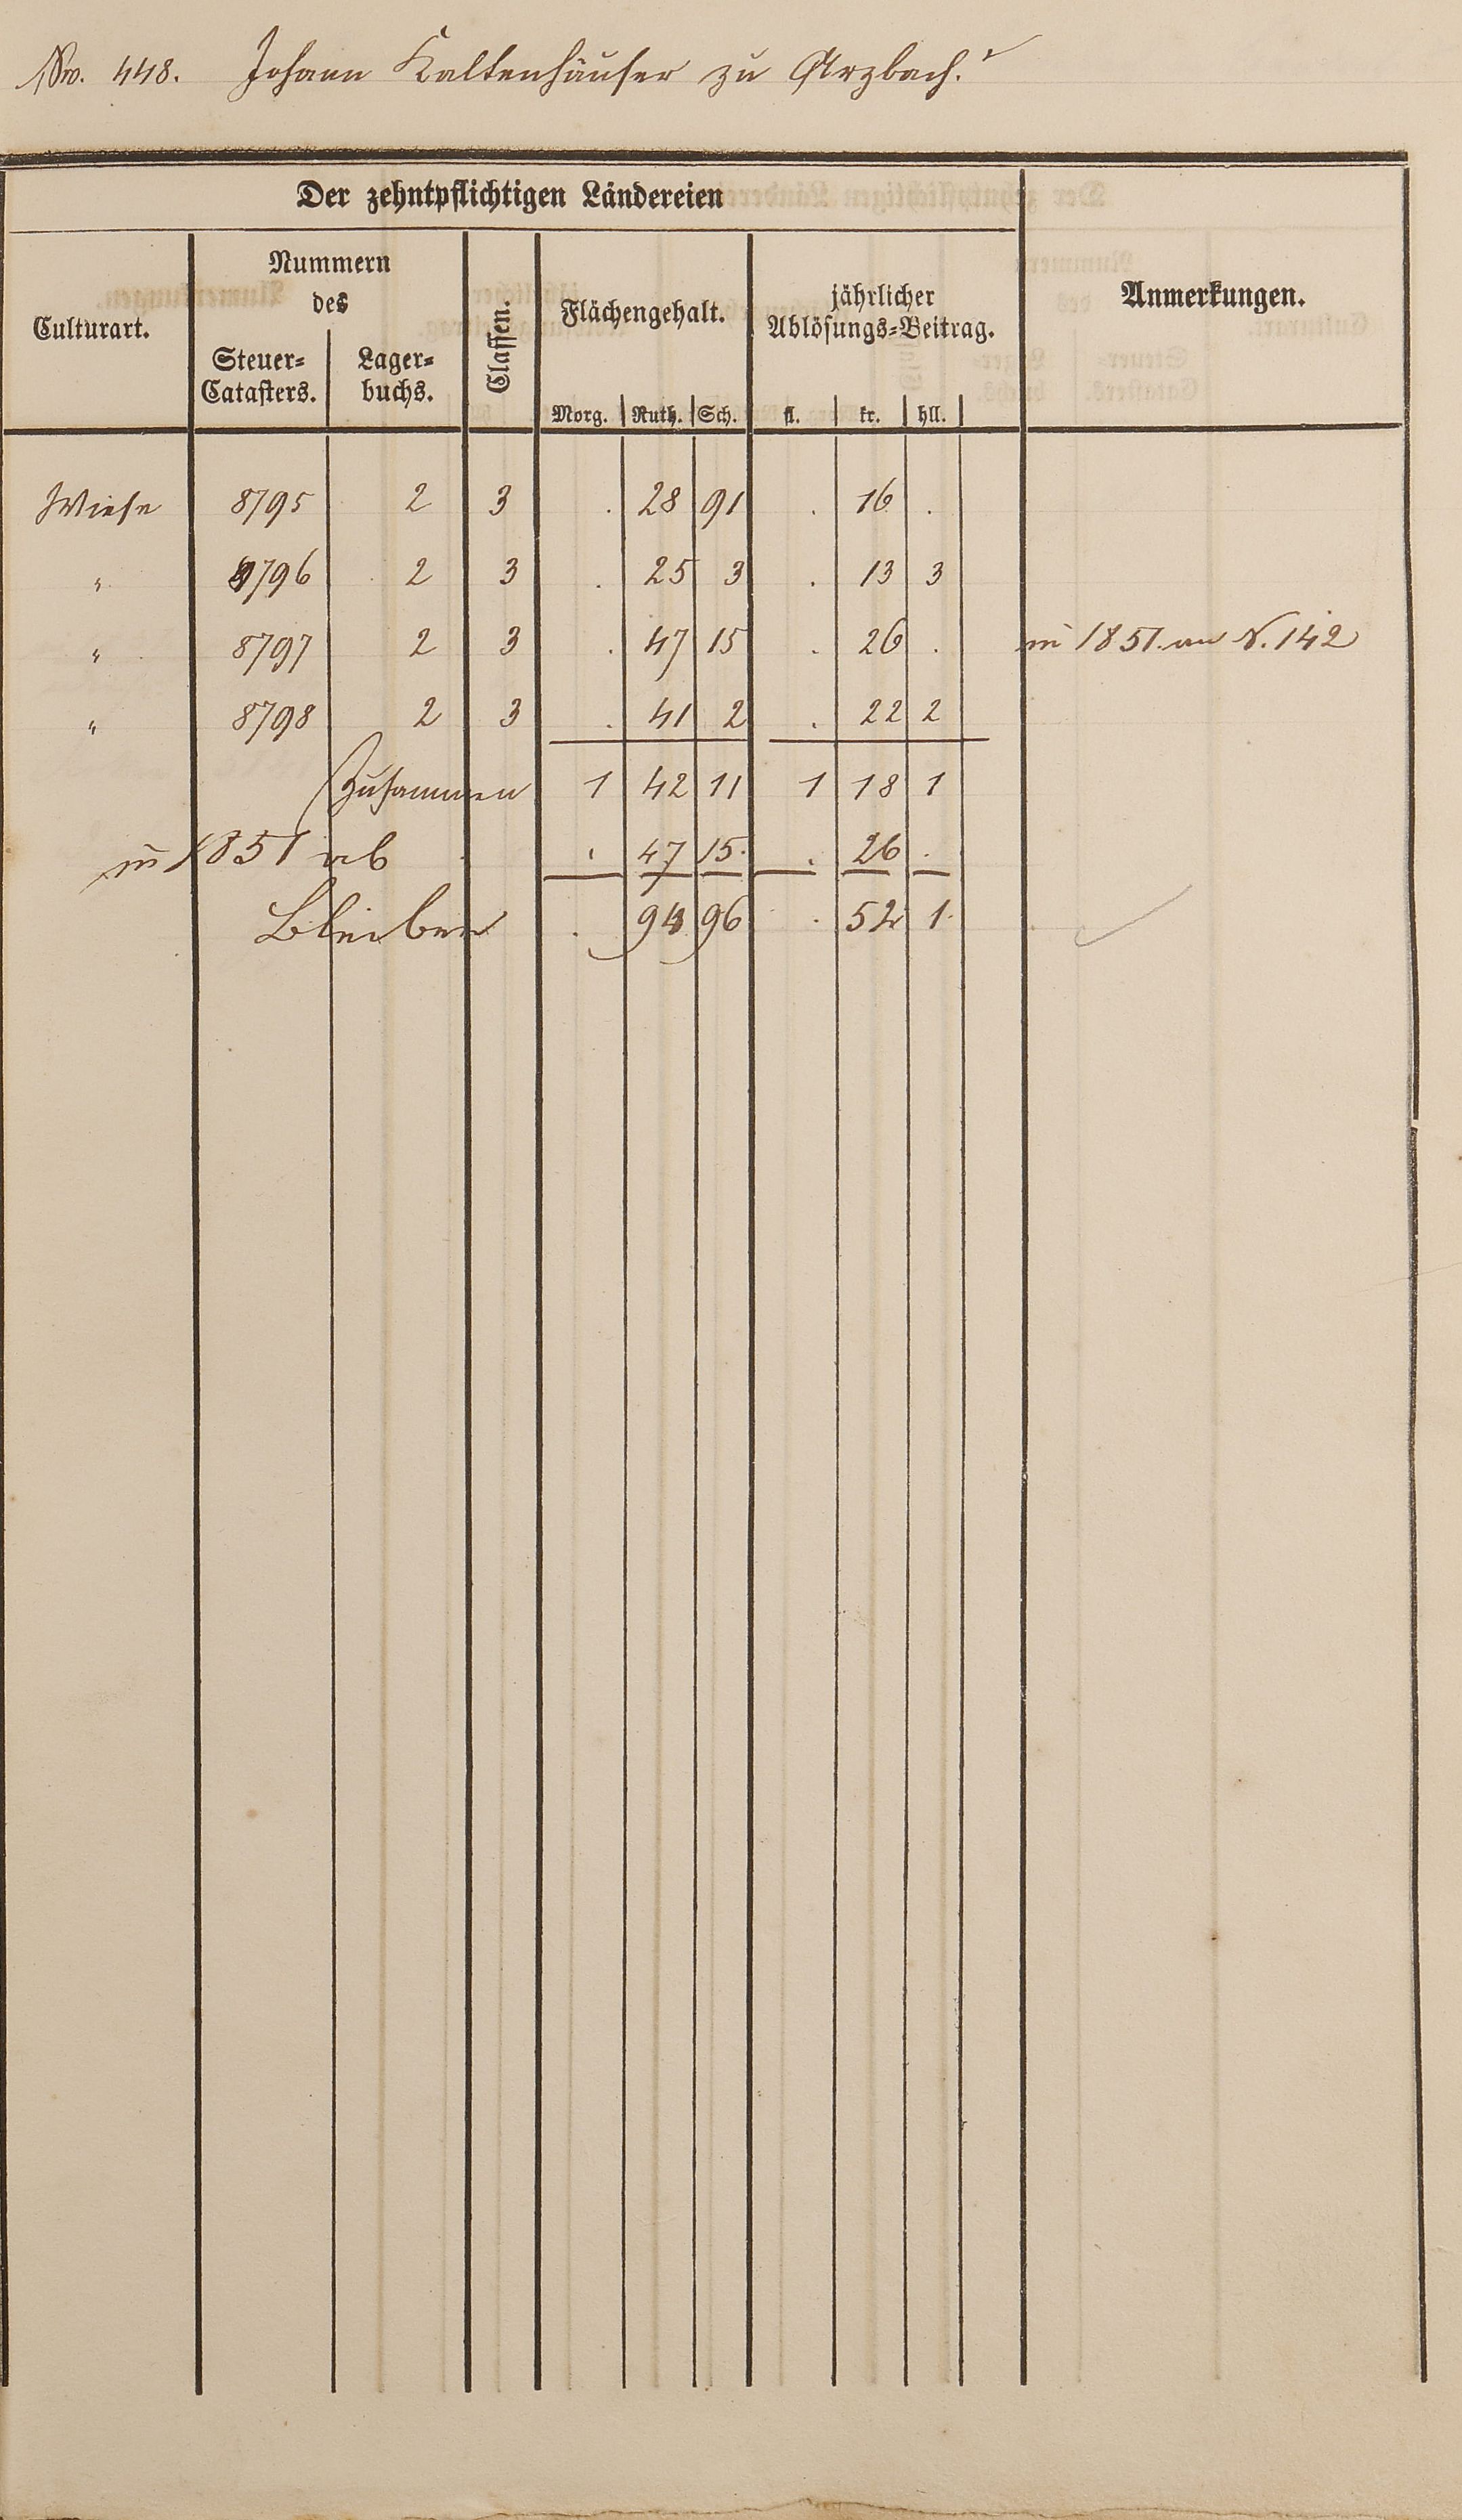 No. 448. Johann Kaltenhäuser zu Arzbach.
Der zehntpflichtigen Ländereien
Culturart.
Nummern
des
Steuer=
Catasters.
Lager=
buchs.
Classen.
Flächengehalt.
Morg. Ruth. Sch.
jährlicher
Ablösungs=Beitrag.
fl. kr. hll.
Anmerkungen.
Wiese 8795 2 3 . 28 91 . 16 .
" 8796 2 3 . 25 3 . 13 3
" 8797 2 3 . 47 15 . 26 . in 1851. an N. 142
" 8798 2 3 . 41 2 . 22 2
Zusammen 1 42 11 1 18 1
in 1851 ab . 47 15. . 26 .
Bleiben . 94 96 . 52 1.